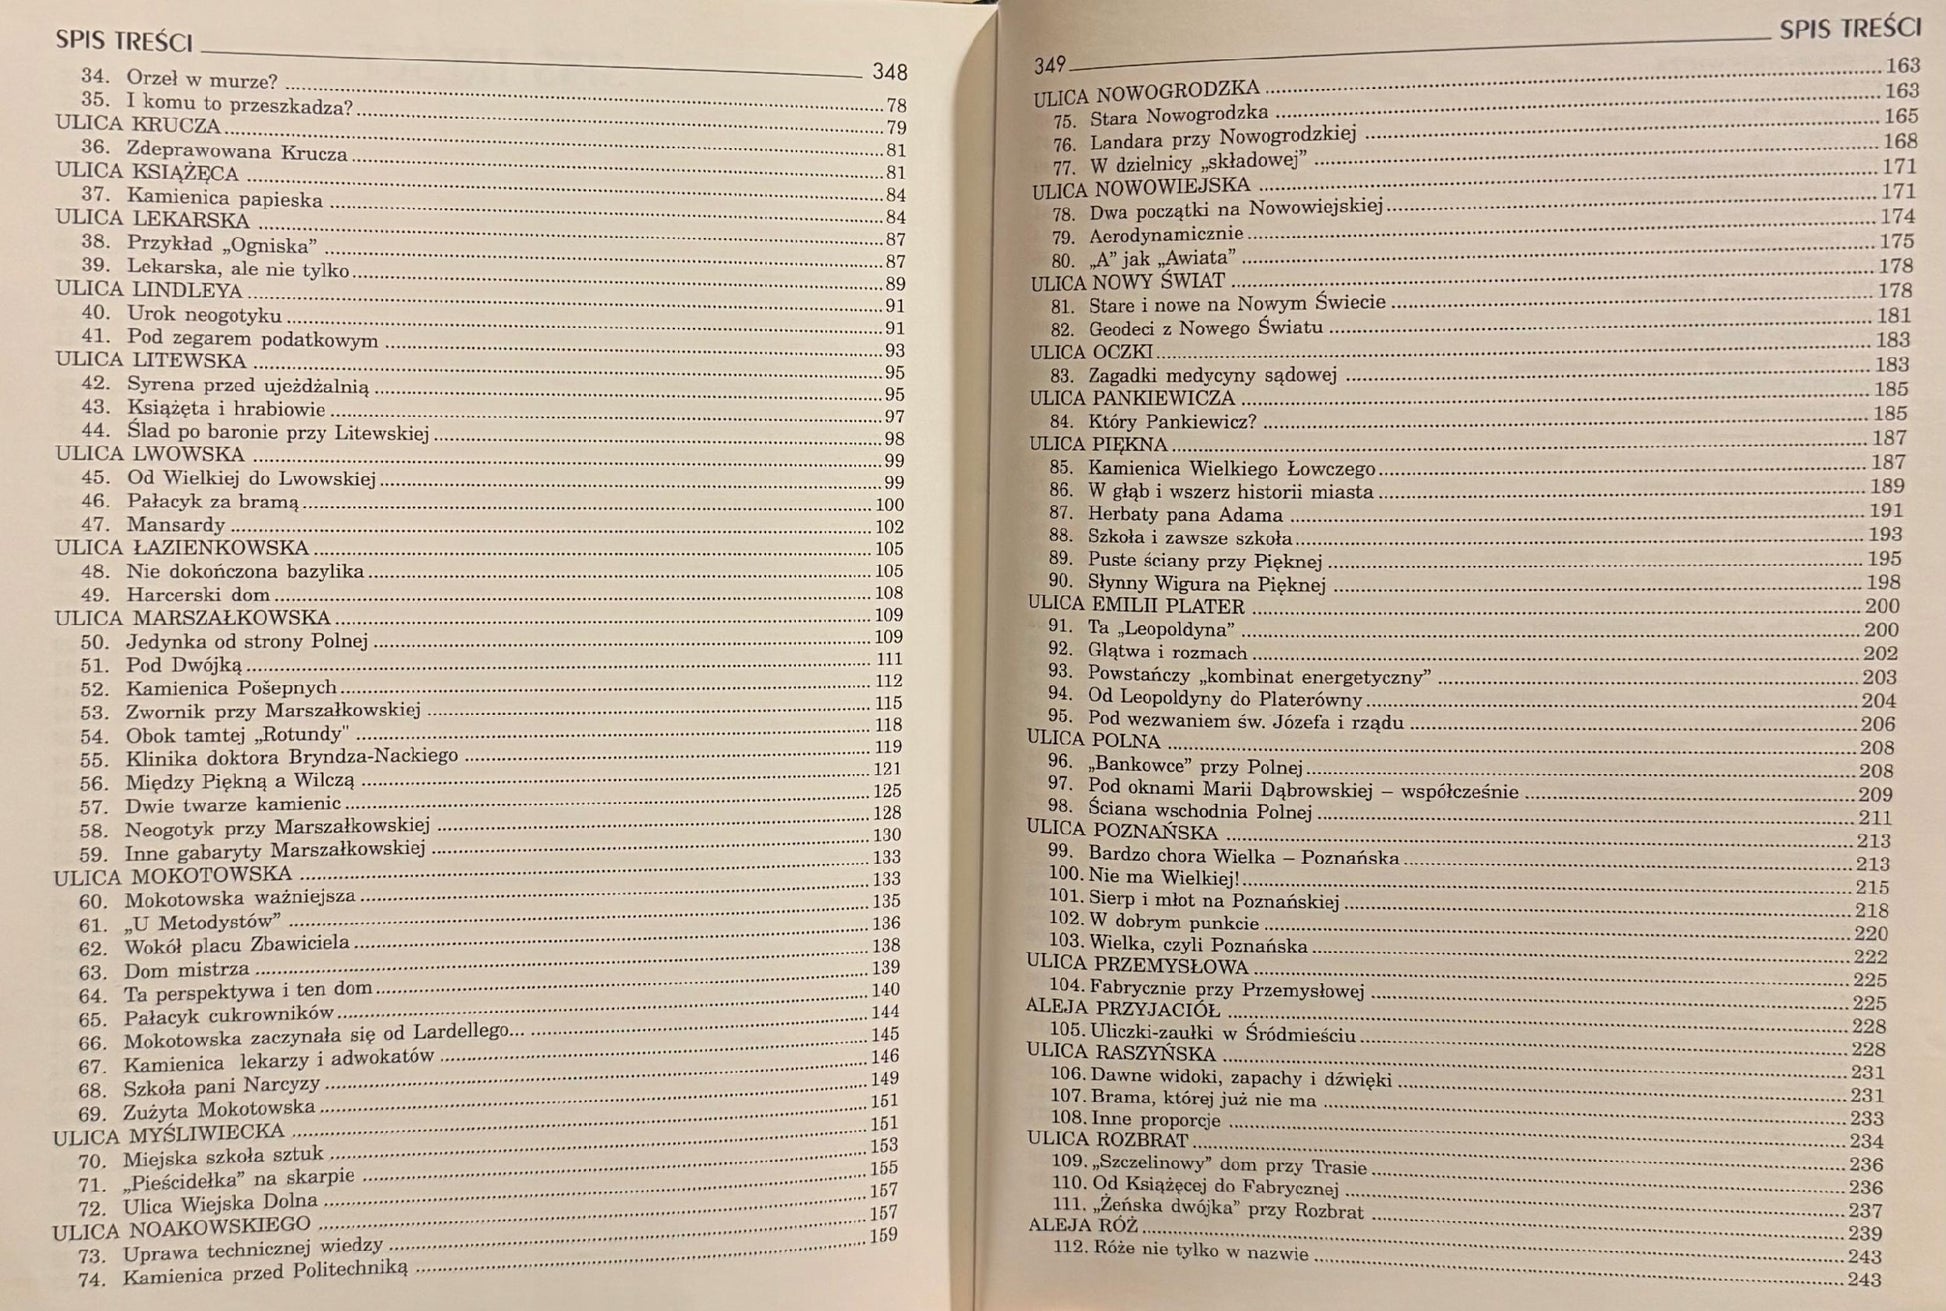 SPIS TREŚCI 348
34. Orzeł w murze? 78
35. I komu to przeszkadza? 79
ULICA KRUCZA 81
36. Zdeprawowana Krucza 81
ULICA KSIĄŻĘCA 84
37. Kamienica papieska 84
ULICA LEKARSKA 87
38. Przykład „Ogniska” 87
39. Lekarska, ale nie tylko 89
ULICA LINDLEYA 91
40. Urok neogotyku 91
41. Pod zegarem podatkowym 93
ULICA LITEWSKA 95
42. Syrena przed ujeżdżalnią 95
43. Książęta i hrabiowie 97
44. Ślad po baronie przy Litewskiej 98
ULICA LWOWSKA 99
45. Od Wielkiej do Lwowskiej 99
46. Pałacyk za bramą 100
47. Mansardy 102
ULICA ŁAZIENKOWSKA 105
48. Nie dokończona bazylika 105
49. Harcerski dom 108
ULICA MARSZAŁKOWSKA 109
50. Jedynka od strony Polnej 109
51. Pod Dwójką 111
52. Kamienica Pošepnych 112
53. Zwornik przy Marszałkowskiej 115
54. Obok tamtej „Rotundy" 118
55. Klinika doktora Bryndza-Nackiego 119
56. Między Piękną a Wilczą 121
57. Dwie twarze kamienic 125
58. Neogotyk przy Marszałkowskiej 128
59. Inne gabaryty Marszałkowskiej 130
ULICA MOKOTOWSKA 133
60. Mokotowska ważniejsza 133
61. „U Metodystów” 135
62. Wokół placu Zbawiciela 136
63. Dom mistrza 138
64. Ta perspektywa i ten dom 139
65. Pałacyk cukrowników 140
66. Mokotowska zaczynała się od Lardellego... 144
67. Kamienica lekarzy i adwokatów 145
68. Szkoła pani Narcyzy 146
69. Zużyta Mokotowska 149
ULICA MYŚLIWIECKA 151
70. Miejska szkoła sztuk 151
71. „Pieścidełka” na skarpie 153
72. Ulica Wiejska Dolna 155
ULICA NOAKOWSKIEGO 157
73. Uprawa technicznej wiedzy 157
74. Kamienica przed Politechniką 159
349 SPIS TREŚCI
ULICA NOWOGRODZKA 163
75. Stara Nowogrodzka 163
76. Landara przy Nowogrodzkiej 165
77. W dzielnicy „składowej” 168
ULICA NOWOWIEJSKA 171
78. Dwa początki na Nowowiejskiej 171
79. Aerodynamicznie 174
80. „A” jak „Awiata” 175
ULICA NOWY ŚWIAT 178
81. Stare i nowe na Nowym Świecie 178
82. Geodeci z Nowego Światu 181
ULICA OCZKI 183
83. Zagadki medycyny sądowej 183
ULICA PANKIEWICZA 185
84. Który Pankiewicz? 185
ULICA PIĘKNA 187
85. Kamienica Wielkiego Łowczego 187
86. W głąb i wszerz historii miasta 189
87. Herbaty pana Adama 191
88. Szkoła i zawsze szkoła 193
89. Puste ściany przy Pięknej 195
90. Słynny Wigura na Pięknej 198
ULICA EMILII PLATER 200
91. Ta „Leopoldyna” 200
92. Glątwa i rozmach 202
93. Powstańczy „kombinat energetyczny” 203
94. Od Leopoldyny do Platerówny 204
95. Pod wezwaniem św. Józefa i rządu 206
ULICA POLNA 208
96. „Bankowce” przy Polnej 208
97. Pod oknami Marii Dąbrowskiej – współcześnie 209
98. Ściana wschodnia Polnej 211
ULICA POZNAŃSKA 213
99. Bardzo chora Wielka – Poznańska 213
100. Nie ma Wielkiej! 215
101. Sierp i młot na Poznańskiej 218
102. W dobrym punkcie 220
103. Wielka, czyli Poznańska 222
ULICA PRZEMYSŁOWA 225
104. Fabrycznie przy Przemysłowej 225
ALEJA PRZYJACIÓŁ 228
105. Uliczki-zaułki w Śródmieściu 228
ULICA RASZYŃSKA 231
106. Dawne widoki, zapachy i dźwięki 231
107. Brama, której już nie ma 233
108. Inne proporcje 234
ULICA ROZBRAT 236
109. „Szczelinowy” dom przy Trasie 236
110. Od Książęcej do Fabrycznej 237
111. „Żeńska dwójka” przy Rozbrat 239
ALEJA RÓŻ 243
112. Róże nie tylko w nazwie 243